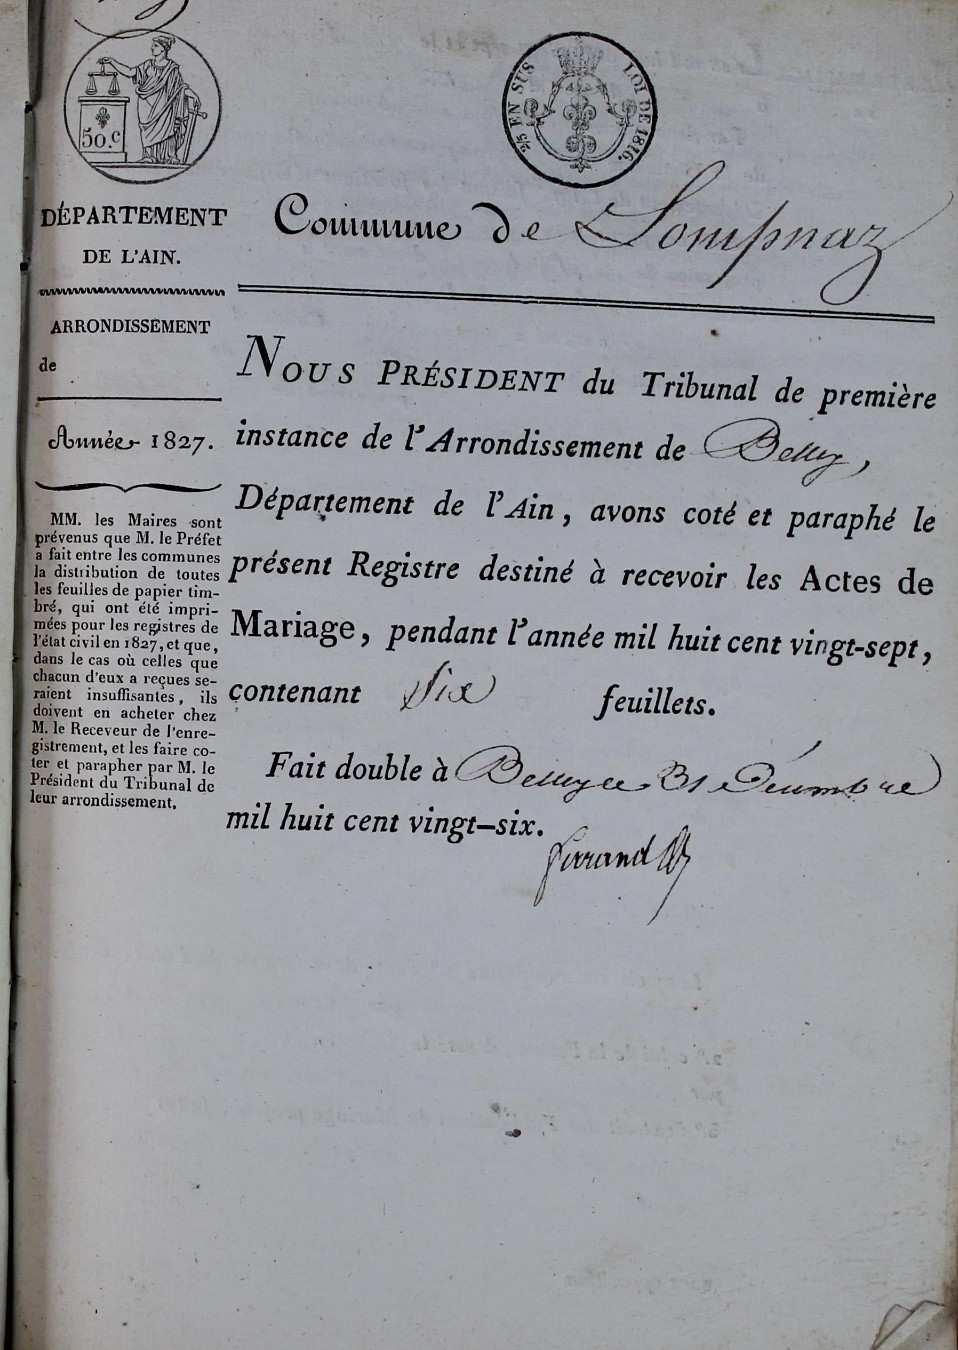 50.c
2/5 EN SUS
LOI DE 1816.
DÉPARTEMENT
DE L'AIN.
ARRONDISSEMENT
de
Année 1827.
MM. les Maires sont
prévenus que M. le Préfet
a fait entre les communes
la distribution de toutes
les feuilles de papier tim-
bré, qui ont été impri-
mées pour les registres de
l'état civil en 1827, et que,
dans le cas où celles que
chacun d'eux a reçues se-
raient insuffisantes, ils
doivent en acheter chez
M. le Receveur de l'enre-
gistrement, et les faire co-
ter et parapher par M. le
Président du Tribunal de
leur arrondissement.
Commune de Lompnaz
NOUS PRÉSIDENT du Tribunal de première
instance de l'Arrondissement de Belley,
Département de l'Ain, avons coté et paraphé le
présent Registre destiné à recevoir les Actes de
Mariage, pendant l'année mil huit cent vingt-sept,
contenant Six feuillets.
Fait double à Belley ce 31 Décembre
mil huit cent vingt-six.